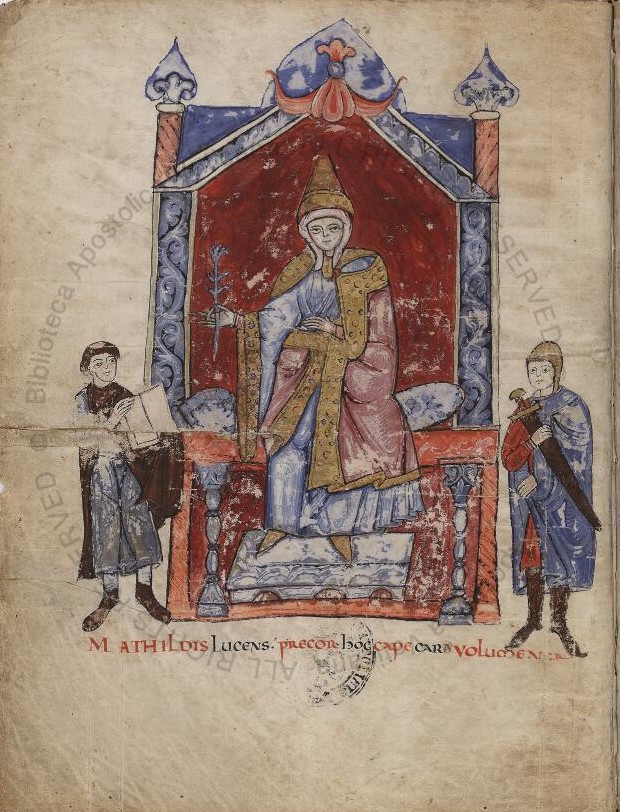 MATHILDIS LUCENS· PRECOR hOC CAPE CARA VOLUMEN
© Biblioteca Apostolic
ALL RIGHTS
SERVED
ERVED